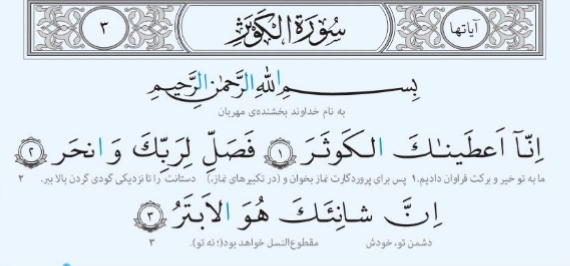 آیاتها سُورَةُ الكَوثَرِ ۳
بِسمِ اللهِ الرَّحمٰنِ الرَّحيمِ
به نام خداوند بخشنده‌ی مهربان
اِنّآ اَعطَينٰكَ الكَوثَرَ ۱ فَصَلِّ لِرَبِّكَ وَ انحَر ۲
ما به تو خیر و برکت فراوان دادیم. ۱ پس برای پروردگارت نماز بخوان و (در تکبیرهای نماز،) دستانت را تا نزدیکی گودی گردن بالا ببر. ۲
اِنَّ شانِئَكَ هُوَ الاَبتَرُ ۳
دشمن تو، خودش مقطوع‌النسل خواهد بود(؛ نه تو). ۳